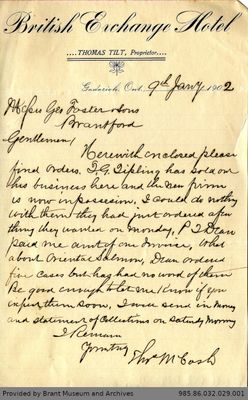 British Exchange Hotel
....THOMAS TILT, Proprietor....
Goderich, Ont. 9th Jany 1902
Messrs Geo Foster & Sons
Brantford
Gentlemen
Herewith enclosed please
find orders. F.G. Tipling has sold out
his business here and the new firm
is now in possession. I could do nothing
with them they had just ordered after
thing they wanted on Monday, P.T. Dean
paid me amt of our Invoice, What
about Oriental Salmon, Dean ordered
five cases but has had no word of them
Be good enough to let me know if you
in them soon, I will send in Money
and statement of Collections on Saturday Morning
I Remain
Yours truly
Thos McCosh
Provided by Brant Museum and Archives
985.86.032.029.001